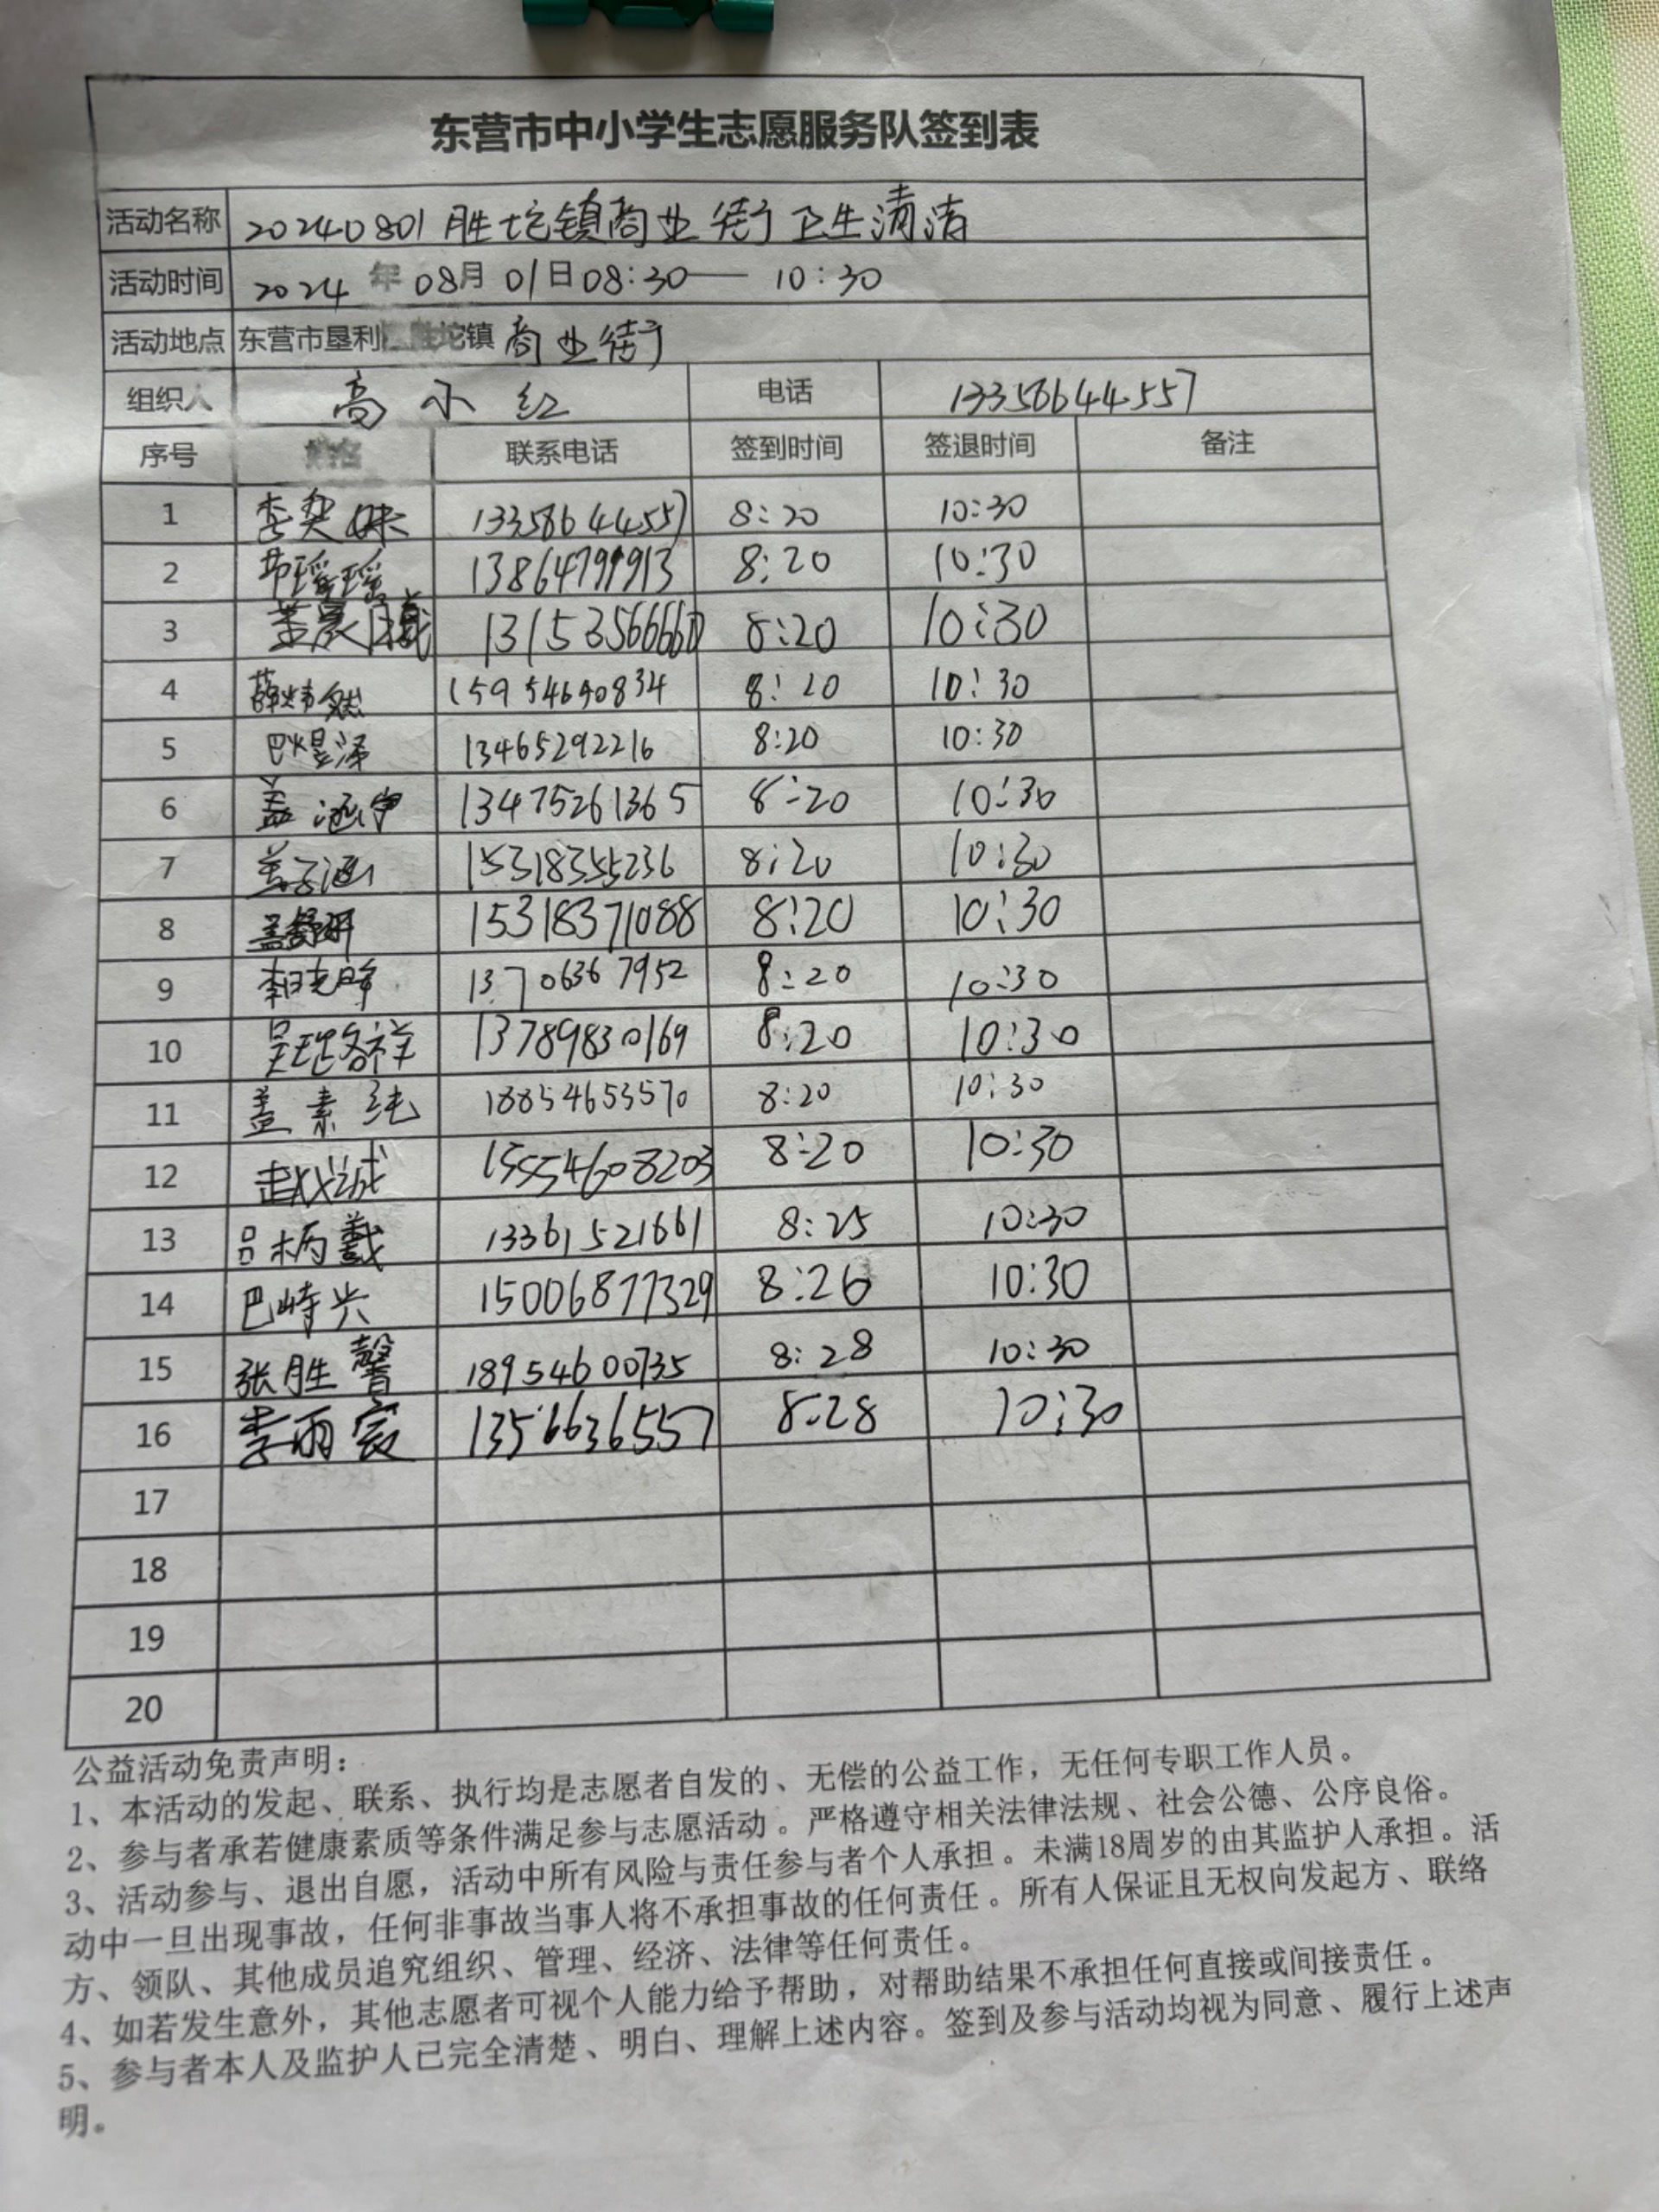 东营市中小学生志愿服务队签到表
活动名称 20240801胜坨镇商业街卫生清洁
活动时间 2024年08月01日08:30——10:30
活动地点 东营市垦利 胜坨镇 商业街
组织人 高小红 电话 13356644557
序号 姓名 联系电话 签到时间 签退时间 备注
1 李奕姝 13358644557 8:20 10:30
2 瑶瑶 13864799913 8:20 10:30
3 董晨曦 8:20 10:30
4 薛炜然 15954690834 8:20 10:30
5 巴煜泽 13465292216 8:20 10:30
6 盖涵宇 13475261365 8:20 10:30
7 盖子涵 15318355236 8:20 10:30
8 盖舒妍 15318371088 8:20 10:30
9 李 13706367952 8:20 10:30
10 吴 祥 13789830169 8:20 10:30
11 盖素纯 18854653570 8:20 10:30
12 赵义诚 15554608203 8:20 10:30
13 吕柄戴 13361521661 8:25 10:30
14 巴峙兴 15006877329 8:26 10:30
15 张胜馨 18954600735 8:28 10:30
16 李雨宸 8:28 10:30
17
18
19
20
公益活动免责声明：
1、本活动的发起、联系、执行均是志愿者自发的、无偿的公益工作，无任何专职工作人员。
2、参与者承若健康素质等条件满足参与志愿活动。严格遵守相关法律法规、社会公德、公序良俗。
3、活动参与、退出自愿，活动中所有风险与责任参与者个人承担。未满18周岁的由其监护人承担。活
动中一旦出现事故，任何非事故当事人将不承担事故的任何责任。所有人保证且无权向发起方、联络
方、领队、其他成员追究组织、管理、经济、法律等任何责任。
4、如若发生意外，其他志愿者可视个人能力给予帮助，对帮助结果不承担任何直接或间接责任。
5、参与者本人及监护人已完全清楚、明白、理解上述内容。签到及参与活动均视为同意、履行上述声
明。